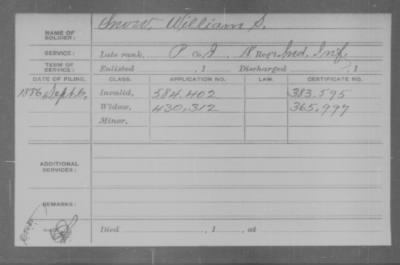 Snow, William S.
NAME OF SOLDIER:
SERVICE: Late rank, P Co. I Regt. Ind. Inf.
TERM OF SERVICE: Enlisted , 1 Discharged , 1
DATE OF FILING. CLASS. APPLICATION NO. LAW. CERTIFICATE NO.
1886, Sept. 6, Invalid, 584.402 383.595
Widow, 430.312 365.997
Minor,
ADDITIONAL SERVICES:
REMARKS:
Died , 1 , at